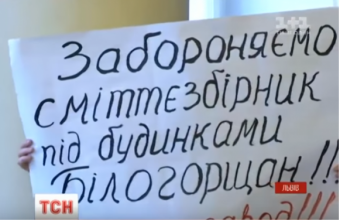 1+1
Забороняємо
сміттєзбірник
під будинками
Білогорщан!!
ЛЬВІВ
ТСН